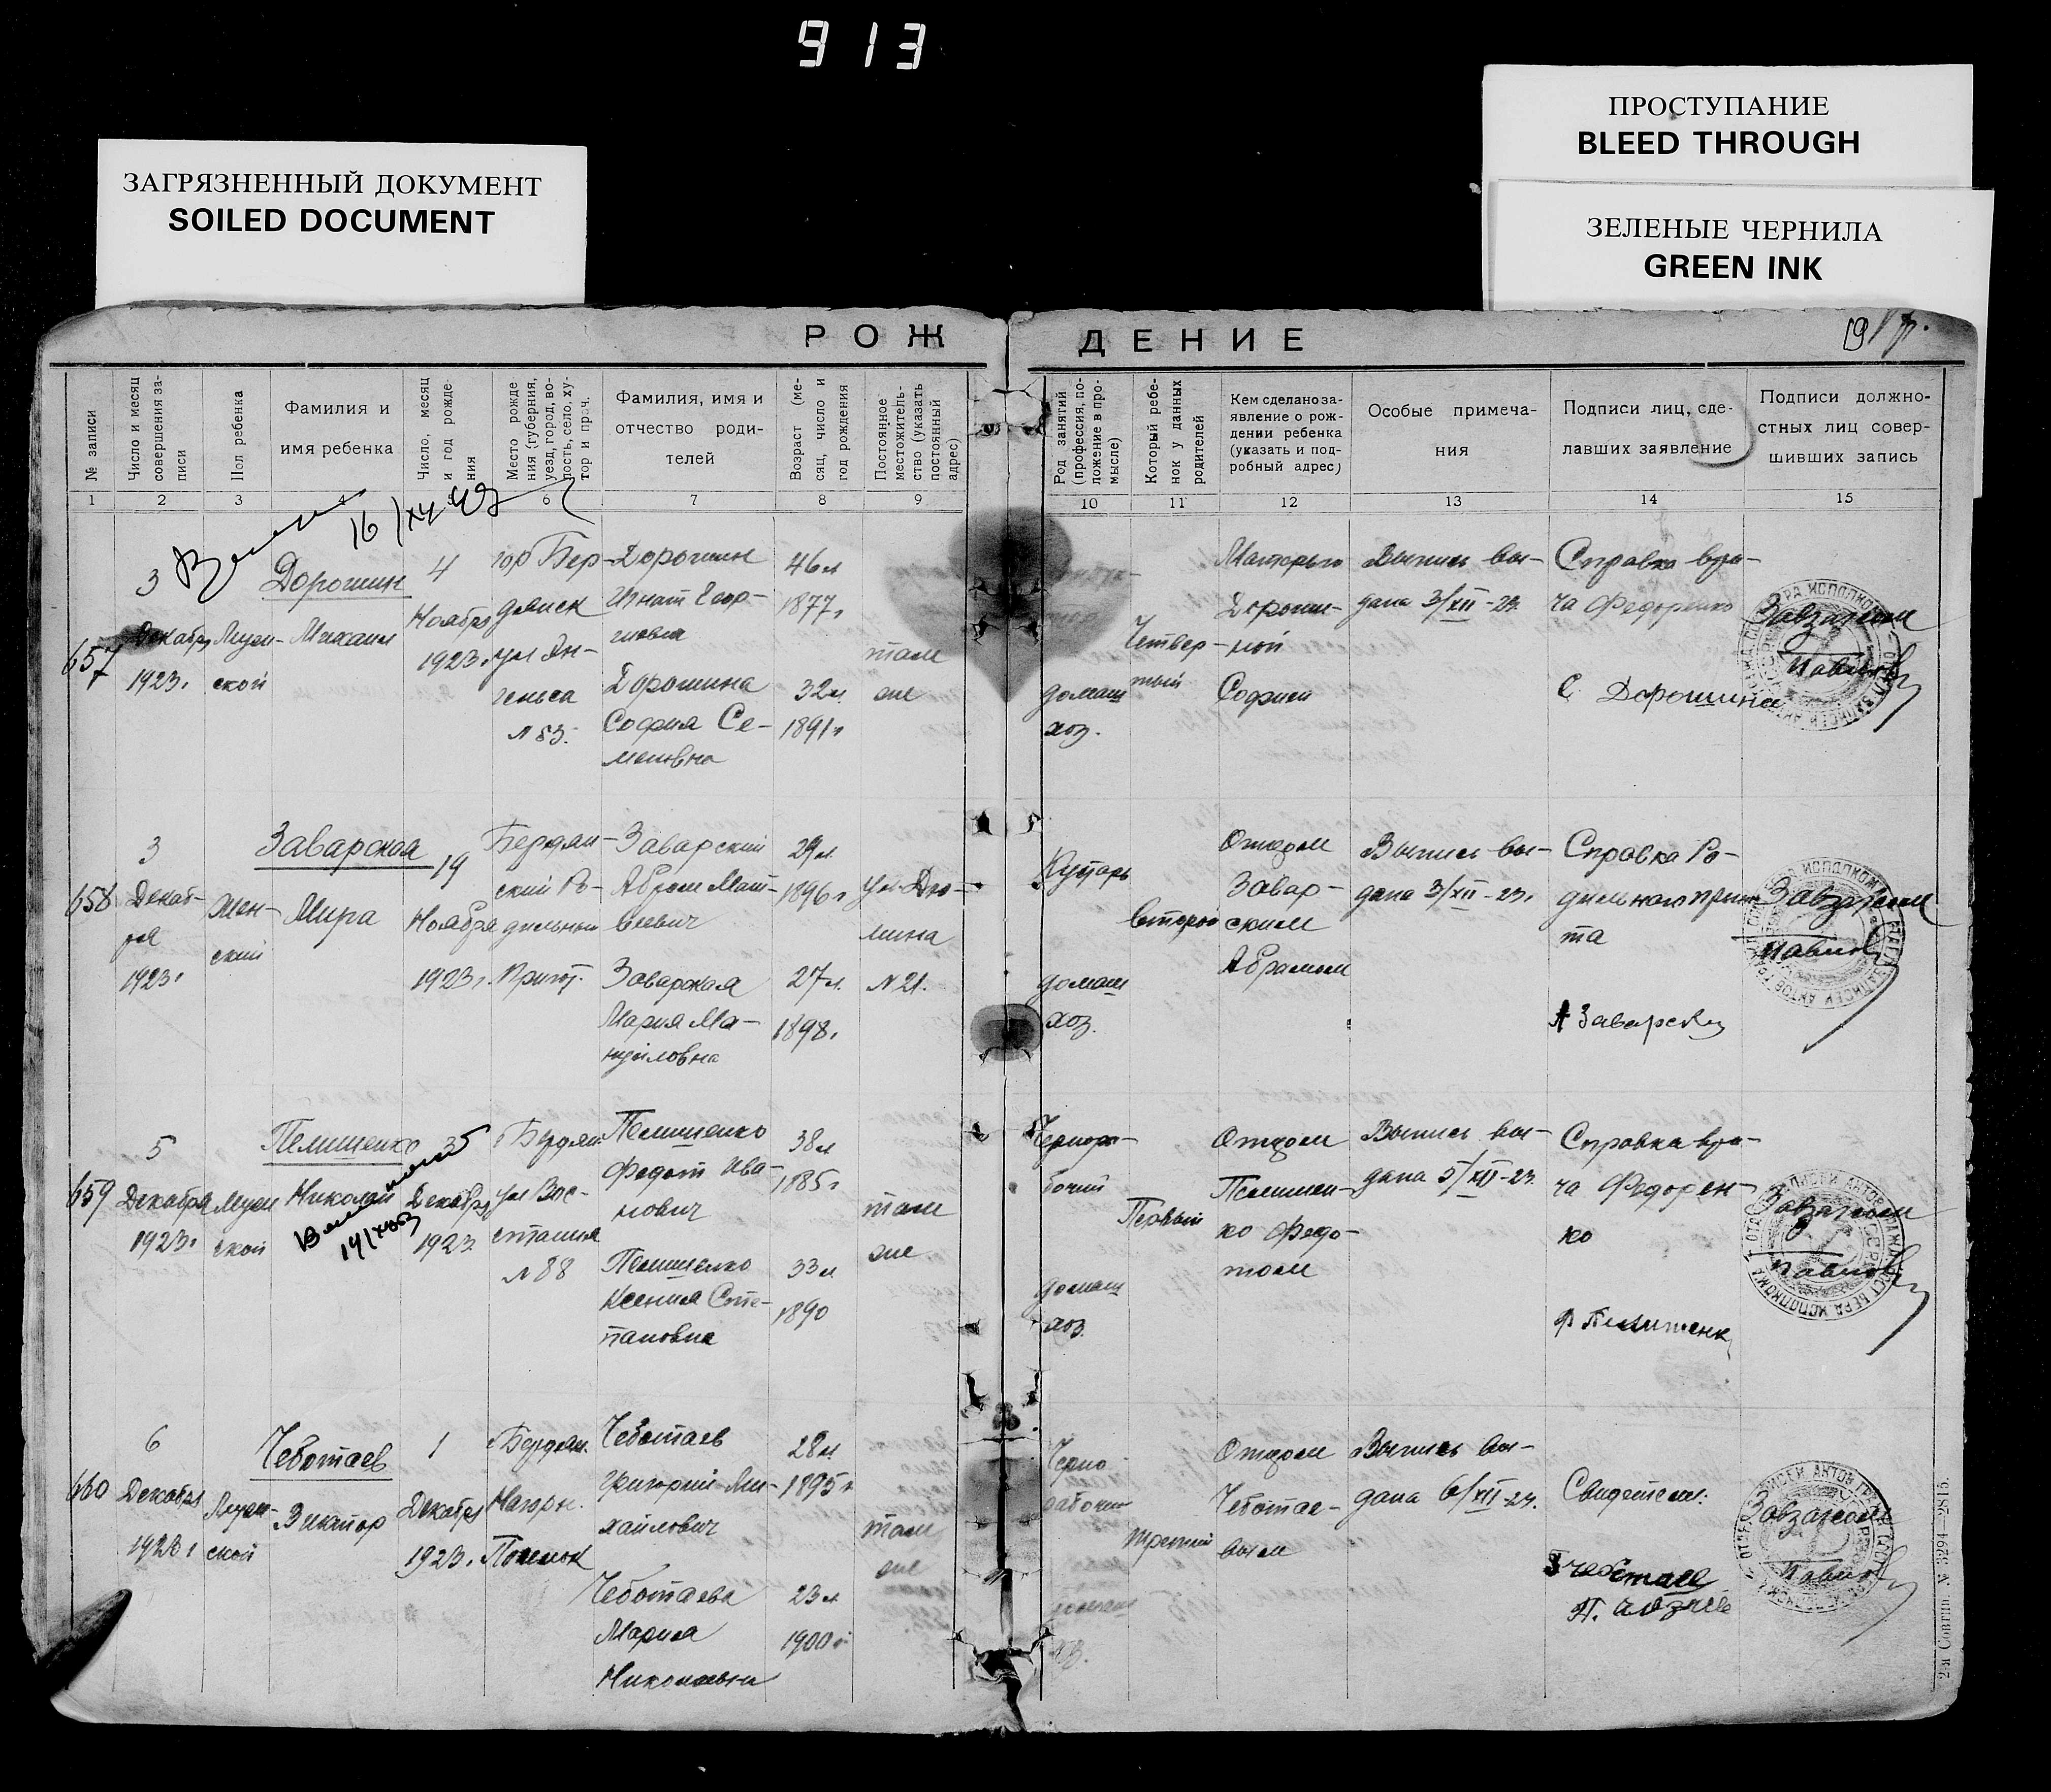 913
ЗАГРЯЗНЕННЫЙ ДОКУМЕНТ
SOILED DOCUMENT
ПРОСТУПАНИЕ
BLEED THROUGH
ЗЕЛЕНЫЕ ЧЕРНИЛА
GREEN INK
РОЖДЕНИЕ
№ записи
Число и месяц
совершения за-
писи
Пол ребенка
Фамилия и
имя ребенка
Число, месяц
и год рожде-
ния
Место рожде
ния (губерния,
уезд, город, во-
лость, село, ху-
тор и проч.
Фамилия, имя и
отчество роди-
телей
Возраст (ме-
сяц, число и
год рождения
Постоянное
местожитель-
ство (указать
постоянный
адрес)
Род занятий
(профессия, по-
ложение в про-
мысле)
Который ребе-
нок у данных
родителей
Кем сделано за-
явление о рож-
дении ребенка
(указать и под-
робный адрес)
Особые примеча-
ния
Подписи лиц, сде-
лавших заявление
Подписи должно-
стных лиц совер-
шивших запись
1 2 3 4 5 6 7 8 9 10 11 12 13 14 15
657
3
Декабря
1923г
Муж-
ской
Дорошин
Михаил
4
Ноября
1923г
гор Бер-
дянск
ул Эн-
гельса
№ 53.
Дорошин
Игнат Егор-
ович
Дорошина
София Се-
меновна
46л
1877г
32л
1891г
там
же
домаш
хоз.
Четвер-
тый
Матерью
Дороши-
ной
Софией
Выпись вы-
дана 3/XII-23.
Справка вра-
ча Федоренко
С Дорошина
Завзагсом
Павлов
658
3
Декаб-
ря
1923г
Жен-
ский
Заварская
Мира
19
Ноября
1923г.
Бердян-
ский Ро-
дильный
Приют.
Заварский
Абрам Мат-
веевич
Заварская
Мария Ма-
нуиловна
29л
1896г
27л.
1898г
№ 21.
домаш
хоз.
второй
Отцом
Завар-
ским
Абрамом
Выпись вы-
дана 3/XII-23г
Справка Ро-
дильного прию-
та
А Заварский
Завзагсом
Павлов
659
5
Декабря
1923г
Муж
ской
Пелишенко
Николай
Декабря
1923
Бердян.
ул Вос-
стания
№ 88
Пелишенко
Федот Ива-
нович
Пелишенко
Ксения Сте-
пановна
38л
1885г
33л
1890
там
же
Чернора-
бочий
домаш
хоз.
Первый
Отцом
Пелишен-
ко Федо-
том
Выпись вы-
дана 5/XII-23.
Справка вра-
ча Федорен-
ко
Ф Пелишенк
Завзагсом
Павлов
660
6
Декабря
1923г
Муж-
ской
Чеботаев
Виктор
1
Декабря
1923г.
Бердян.
Нагорн.
Чеботаев
Григорий Ми-
хайлович
Чеботаева
Мария
Николаевна
28л
1895г
23л
1900г
там
же
Черно
рабочий
домаш
хоз.
третий
Отцом
Чеботае-
вым
Выпись вы-
дана 6/XII-23.
Свидетели:
Завзагсом
Павлов